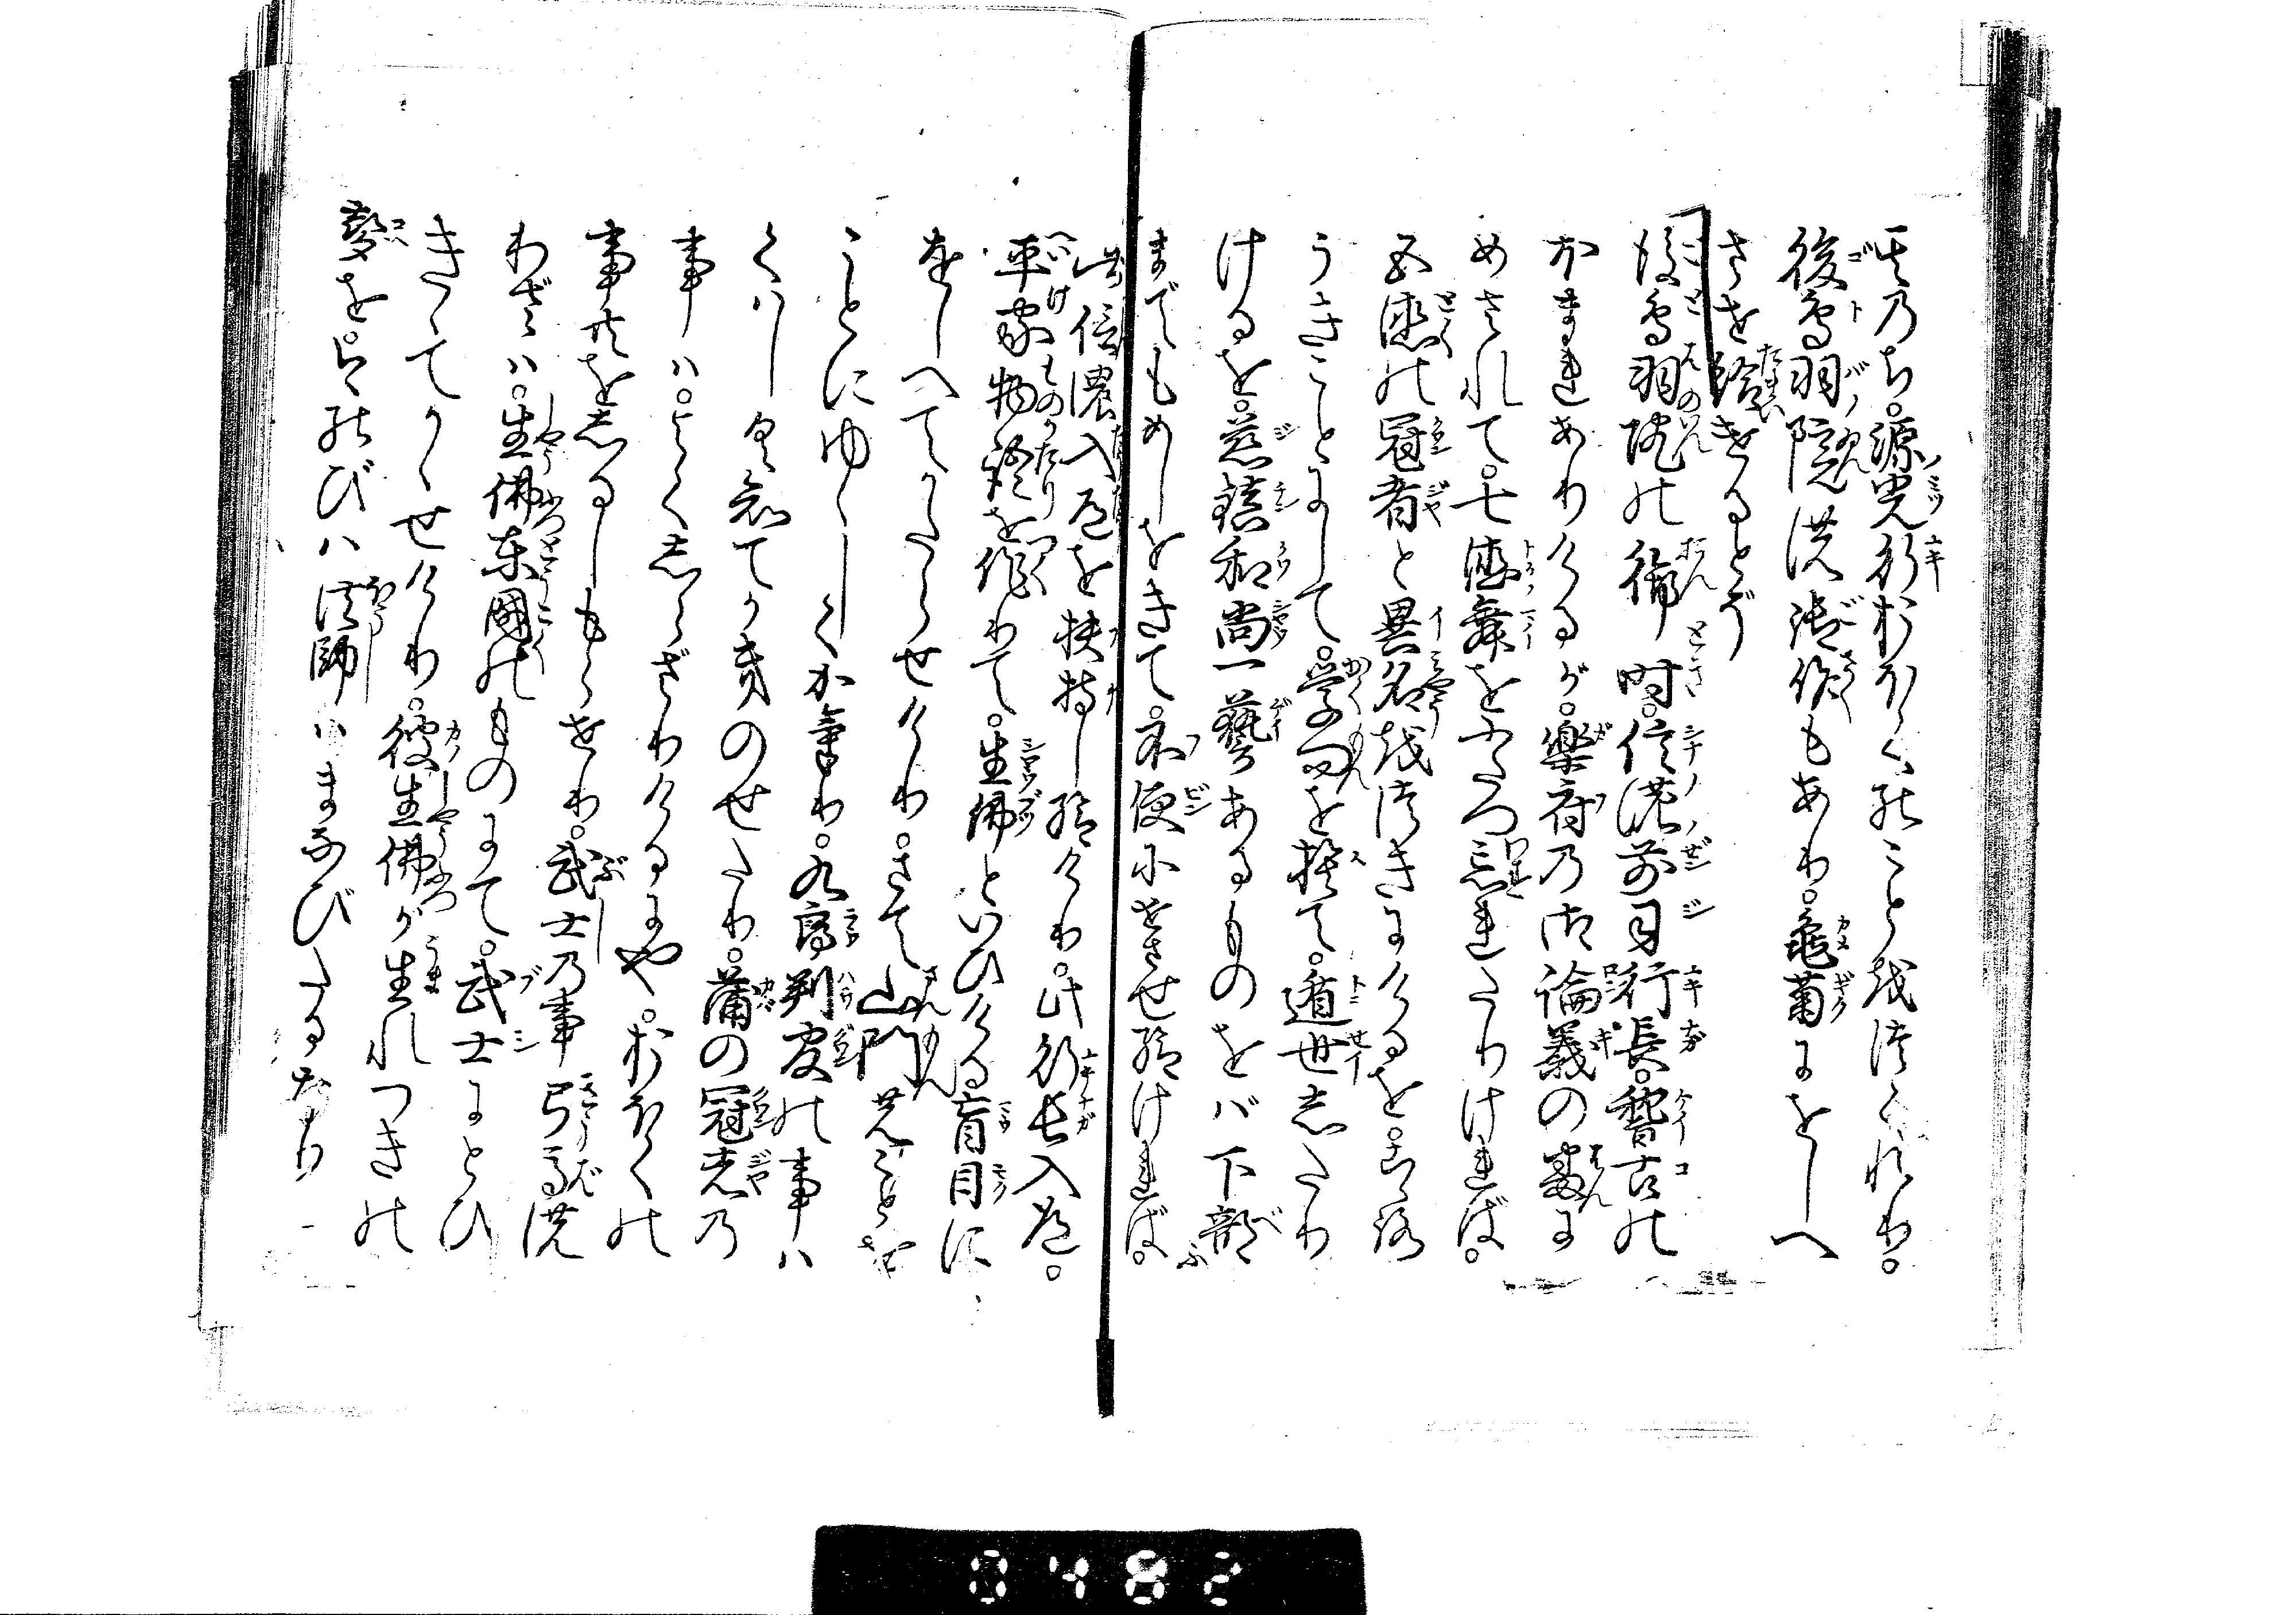 其のち。源光行おほくのことをつくれり。
後鳥羽院の御作もあり。亀菊にをしへ
させ給けるとぞ
後鳥羽院の御時。信濃前司行長。稽古の
ほまれありけるが。楽府の御論義の番に
めされて。七徳舞をふたつ忘れたりければ。
五徳の冠者と異名をつきにけるを。心
うきことにして。学問を捨て。遁世したり
けるを。慈鎮和尚一藝あるものをバ下部
までもめしをきて。不便にせさせ給ければ。
此信濃入道を扶持し給けり。此行長入道。
平家物語を作りて。生佛といひける盲目に
をしへてかたらせけり。さて山門のことを
ことにゆゝしくかけり。九郎判官の事ハ
くハしく知てかきのせたり。蒲の冠者の
事ハ。よくしらざりけるにや。おほくの
事共をしるしもらせり。武士の事弓馬の
わざハ。生佛東國のものにて。武士にとひ
きゝてかゝせけり。彼生佛が生れつきの
聲を。今のびハ法師ハまなびたるなり
3482